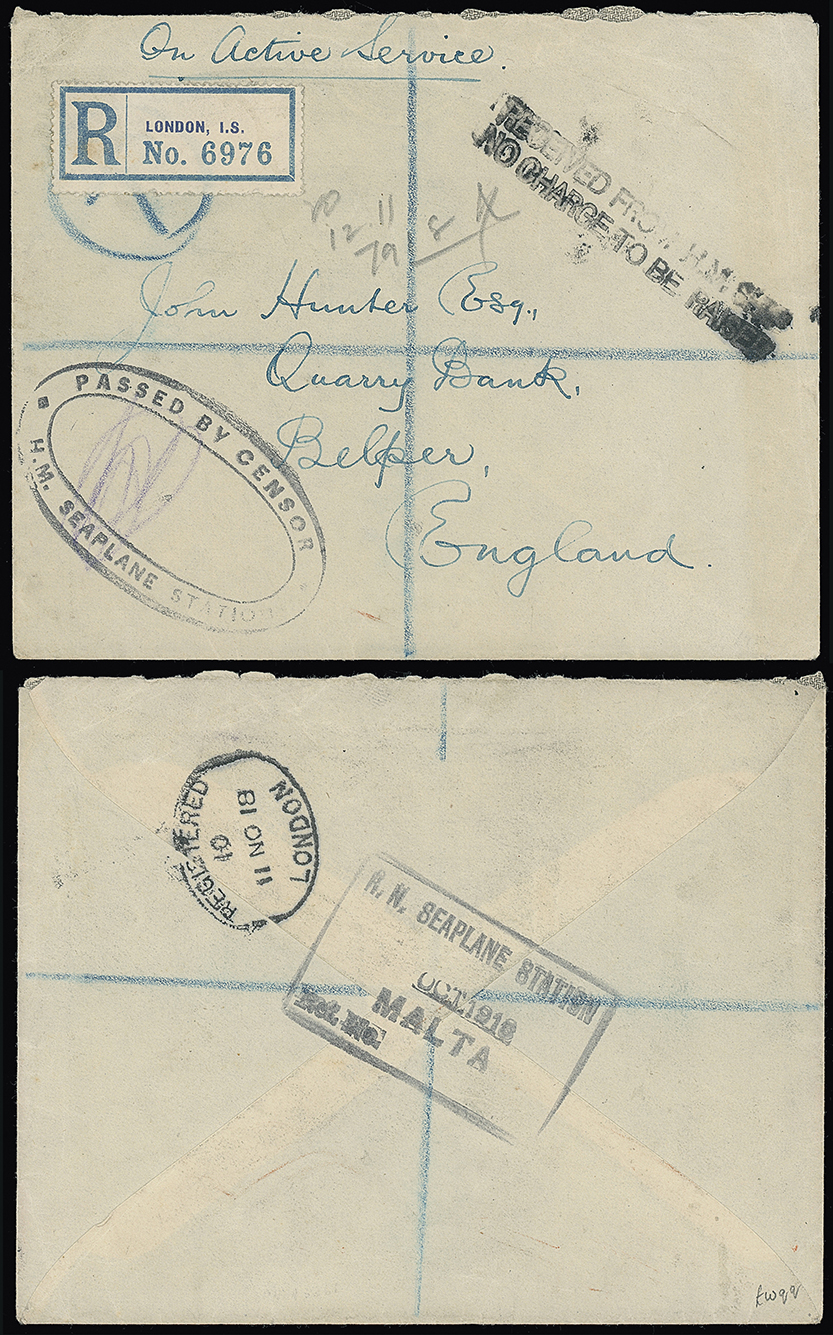 On Active Service.
R
LONDON, I.S.
No. 6976
RECEIVED FROM H.M. SHIP
NO CHARGE TO BE RAISED
12 11
79 8
John Hunter Esq.,
Quarry Bank,
Belper,
England.
PASSED BY CENSOR
H.M. SEAPLANE STATION
REGISTERED
LONDON
11 NO 18
10
R. N. SEAPLANE STATION
OCT. 1918
MALTA
Ref. No.